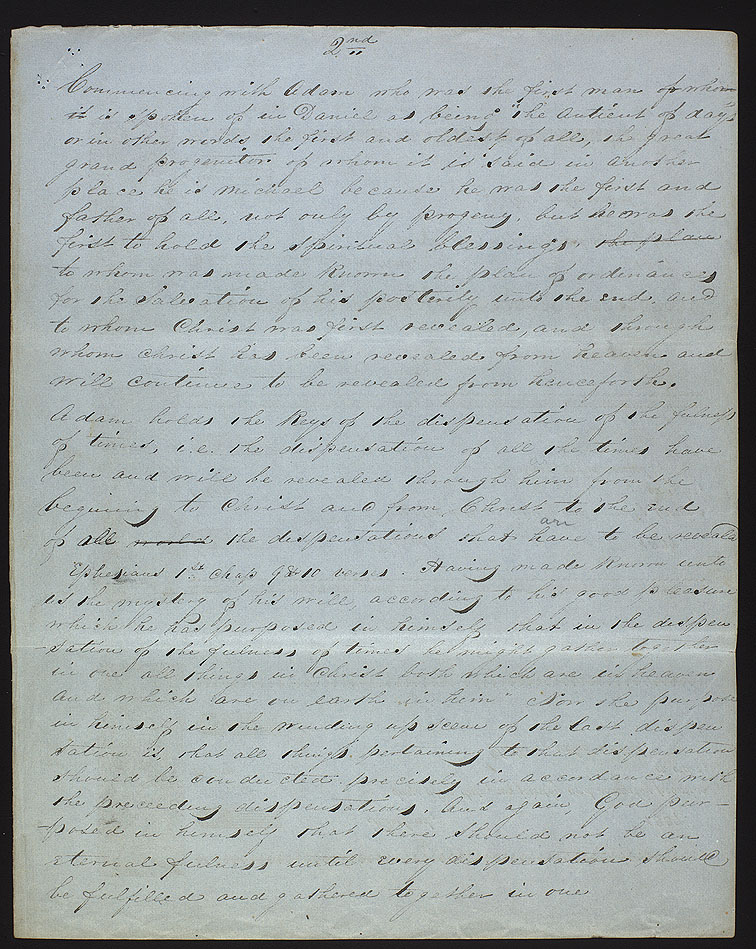 2nd
Commencing with Adam who was the first man of whom
it is spoken of in Daniel as being "the Antient of days"
or in other words the first and oldest of all, the great
grand progenitor of whom it is said in another
place he is michael because he was the first and
father of all, not only by progeny, but he was the
first to hold the spiritual blessings, the plan
to whom was made known the plan of ordinances
for the Salvation of his posterity unto the end, and
to whom Christ was first revealed, and through
whom christ has been revealed from heaven and
will continue to be revealed from henceforth.
Adam holds the Keys of the dispensation of the fulness
of times, i.e. the dispensation of all the times have
been and will be revealed through him from the
begining to Christ and from Christ to the end
of all world the dispensations that have to be revealed
are
Ephesians 1st chap 9 & 10 verses. Having made known unto
us the mystery of his will, according to his good pleasure
which he has purposed in himself that in the dispen
-sation of the fulness of times he might gather together
in one all things in Christ both which are in heaven
and which are on earth in him" Now the purpose
in himself in the winding up scene of the last dispen
sation is, that all things pertaining to that dispensation
should be conducted precisely in accordance with
the preceeding dispensations. And again, God pur-
-posed in himself that there should not be an
eternal fulness until every dispensation should
be fulfilled and gathered together in one